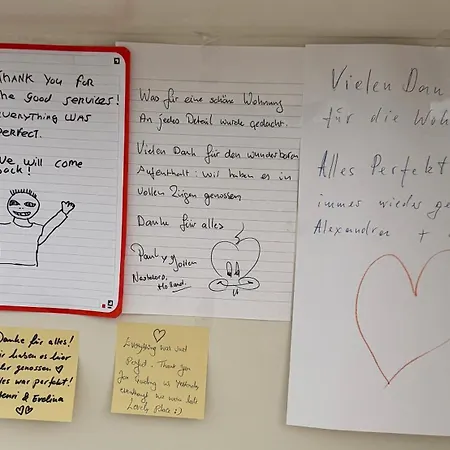 THANK YOU FOR
the good services!
EVERYTHING WAS
PERFECT.
we will come
back!
Was für eine schöne Wohnung
An jedes Detail wurde gedacht.
Vielen Dank für den wunderbaren
Aufenthalt: wir haben es in
vollen Zügen genossen
Danke für alles
Paul
Holland.
Vielen Dan
für die Woh
Alles Perfekt
immer wieder ge
Alexandra +
Danke für alles!
ir haben es hier
hr genossen
les war perfekt!
enri & Evelina
Everything was just
Perfect. Thank you
for
we were here
Lovely Place :)